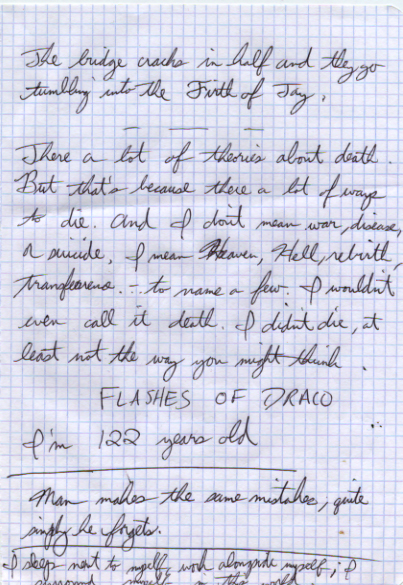 The bridge cracks in half and they go
tumbling into the Firth of Tay.
There a lot of theories about death.
But that's because there a lot of ways
to die. And I don't mean war, disease,
or suicide, I mean Heaven, Hell, rebirth,
to name a few. I wouldn't
even call it death. I didn't die, at
least not the way you might think.
FLASHES OF DRACO
I'm 122 years old
Man makes the same mistakes, quite
simply he forgets.
I sleep next to myself, work alongside myself; I
myself in this world